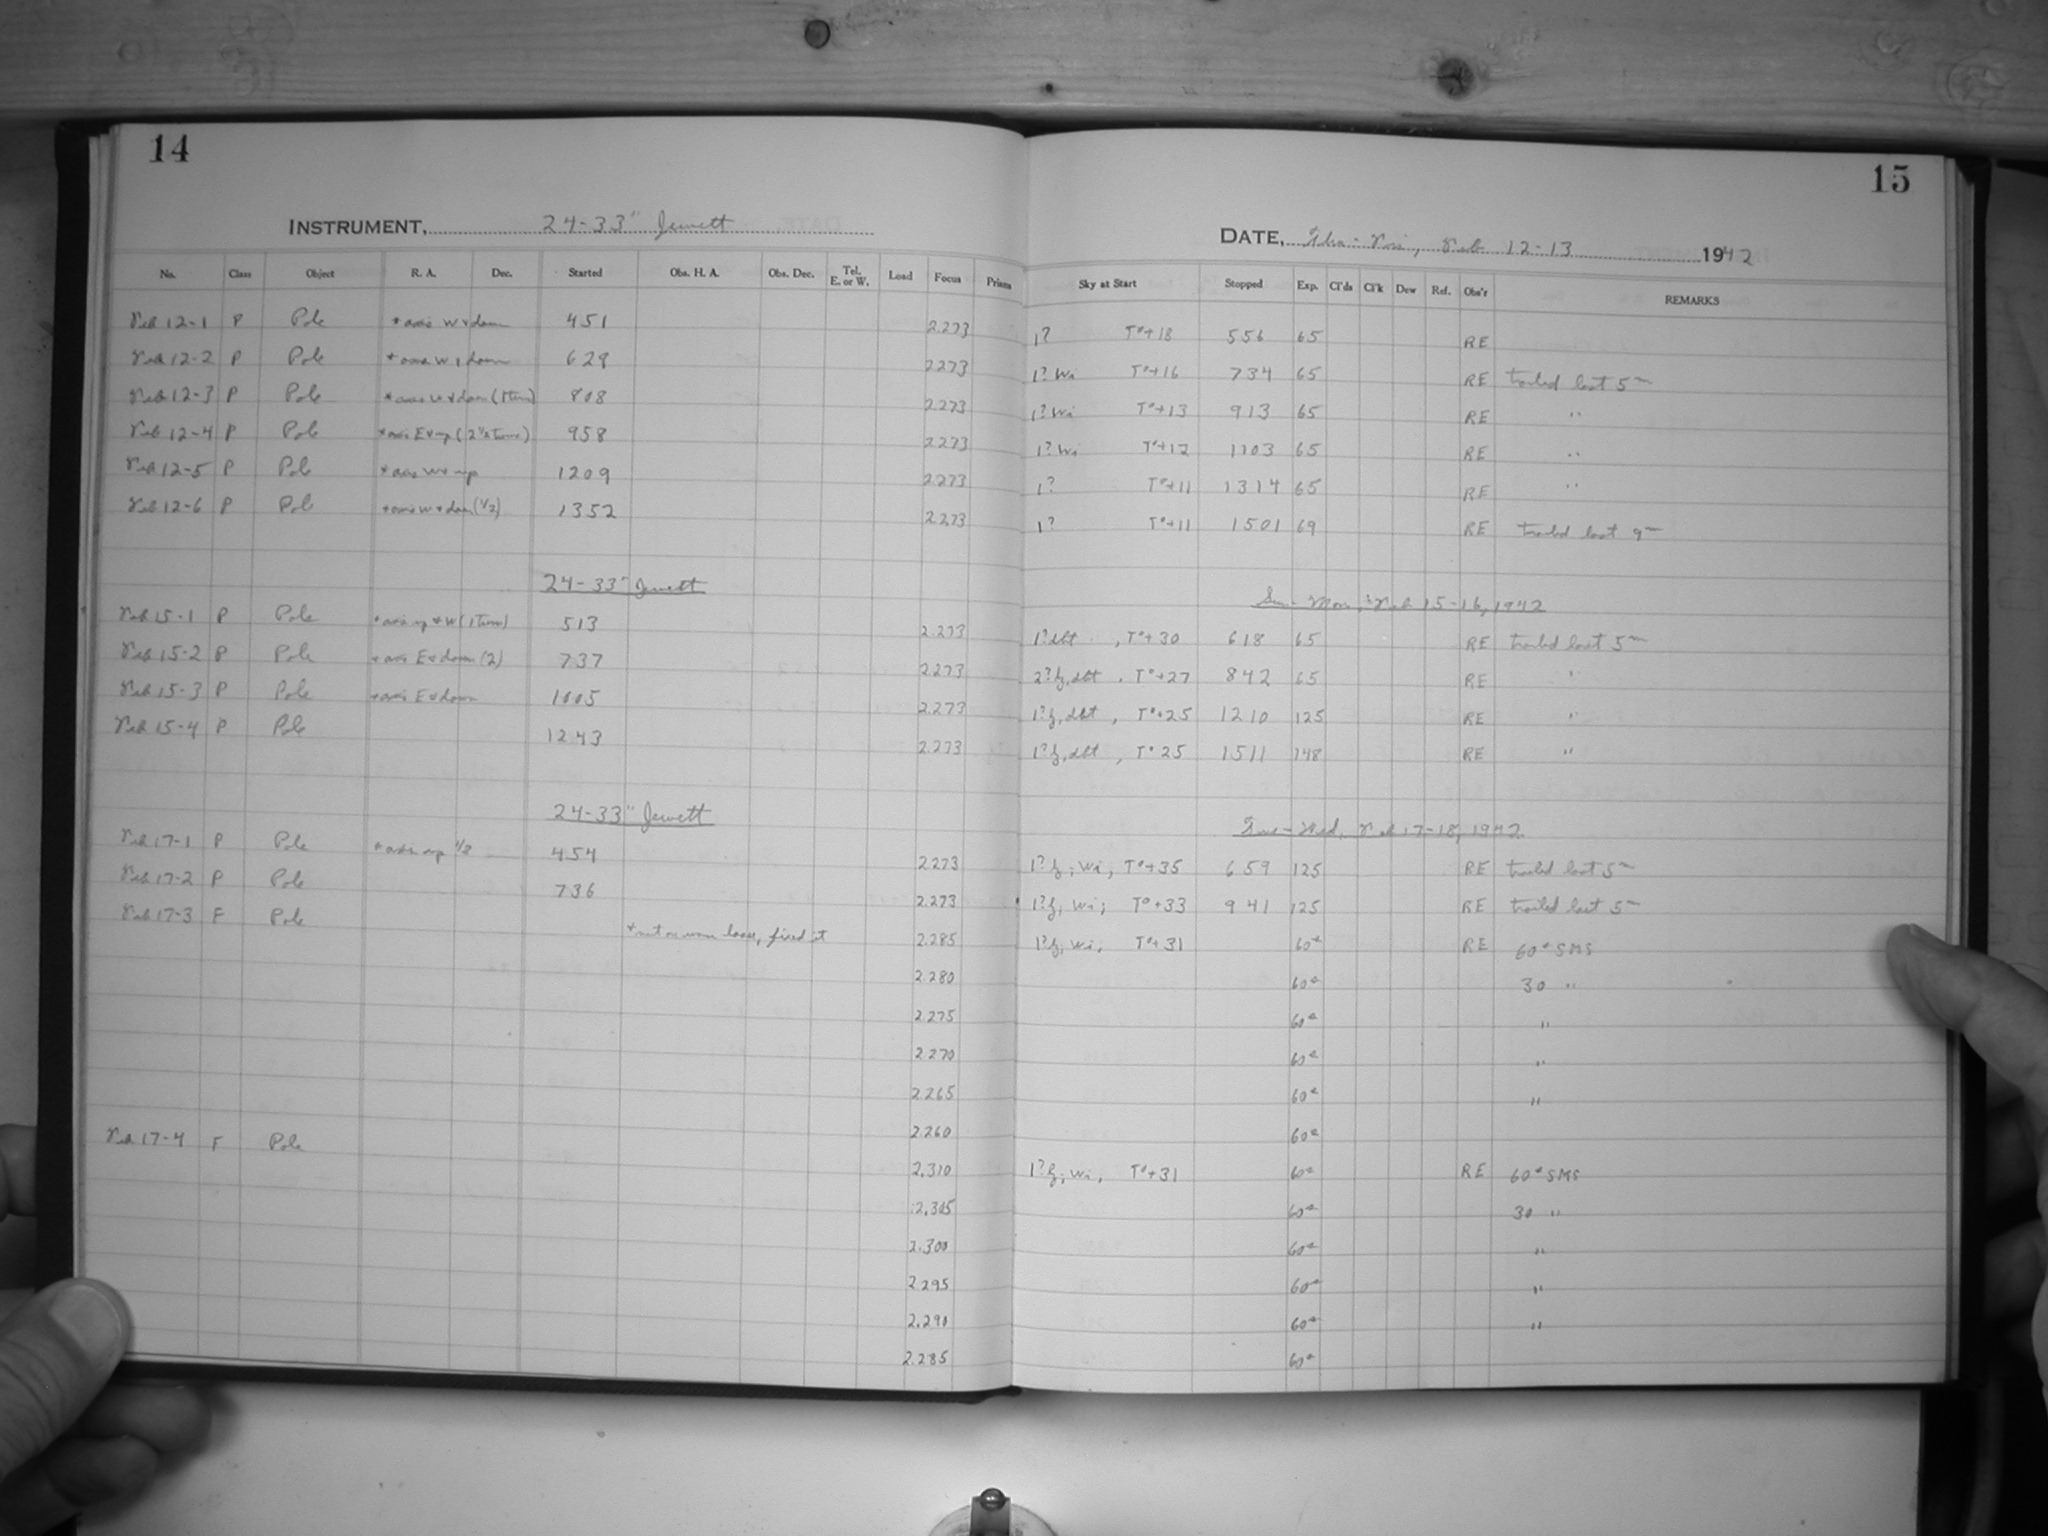 14
INSTRUMENT, 24-33" Jewett
No. Class Object R. A. Dec. Started Obs. H. A. Obs. Dec. Tel. E. or W. Load Focus Prisms
Feb 12-1 P Pole *axis W & down 451 2.273
Feb 12-2 P Pole *axis W & down 629 2.273
Feb 12-3 P Pole *axis W & down (1 turn) 808 2.273
Feb 12-4 P Pole *axis E & up (2 1/2 turns) 958 2.273
Feb 12-5 P Pole *axis W & up 1209 2.273
Feb 12-6 P Pole *axis W & down (1/2) 1352 2.273
24-33" Jewett
Feb 15-1 P Pole *axis up & W (1 turn) 513 2.273
Feb 15-2 P Pole *axis E & down (2) 737 2.273
Feb 15-3 P Pole *axis E & down 1005 2.273
Feb 15-4 P Pole 1243 2.273
24-33" Jewett
Feb 17-1 P Pole *axis up 1/2 454 2.273
Feb 17-2 P Pole 736 2.273
Feb 17-3 F Pole loose, fixed it 2.285
2.280
2.275
2.270
2.265
2.260
Feb 17-4 F Pole 2.310
2.305
2.300
2.295
2.290
2.285
15
DATE, Thu-Fri, Feb 12-13 1942
Sky at Start Stopped Exp. Cl'ds Cl'k Dew Ref. Obs'r REMARKS
1? T°+18 556 65 RE
1? Wi T°+16 734 65 RE trailed last 5m
1? Wi T°+13 913 65 RE "
1? Wi T°+12 1103 65 RE "
1? T°+11 1314 65 RE "
1? T°+11 1501 69 RE trailed last 9m
Sun-Mon, Feb 15-16, 1942
1? dbt , T°+30 618 65 RE trailed last 5m
2? h, dbt , T°+27 842 65 RE "
1? h, dbt , T°+25 1210 125 RE "
1? h, dbt , T° 25 1511 148 RE "
Tues-Wed, Feb 17-18, 1942
1? h; Wi, T°+35 659 125 RE trailed last 5m
1? h; Wi; T°+33 941 125 RE trailed last 5m
1? h, Wi, T°+31 60s RE 60s SMS
60s 30 "
60s "
60s "
60s "
60s
1? h; Wi, T°+31 60s RE 60s SMS
60s 30 "
60s "
60s "
60s "
60s